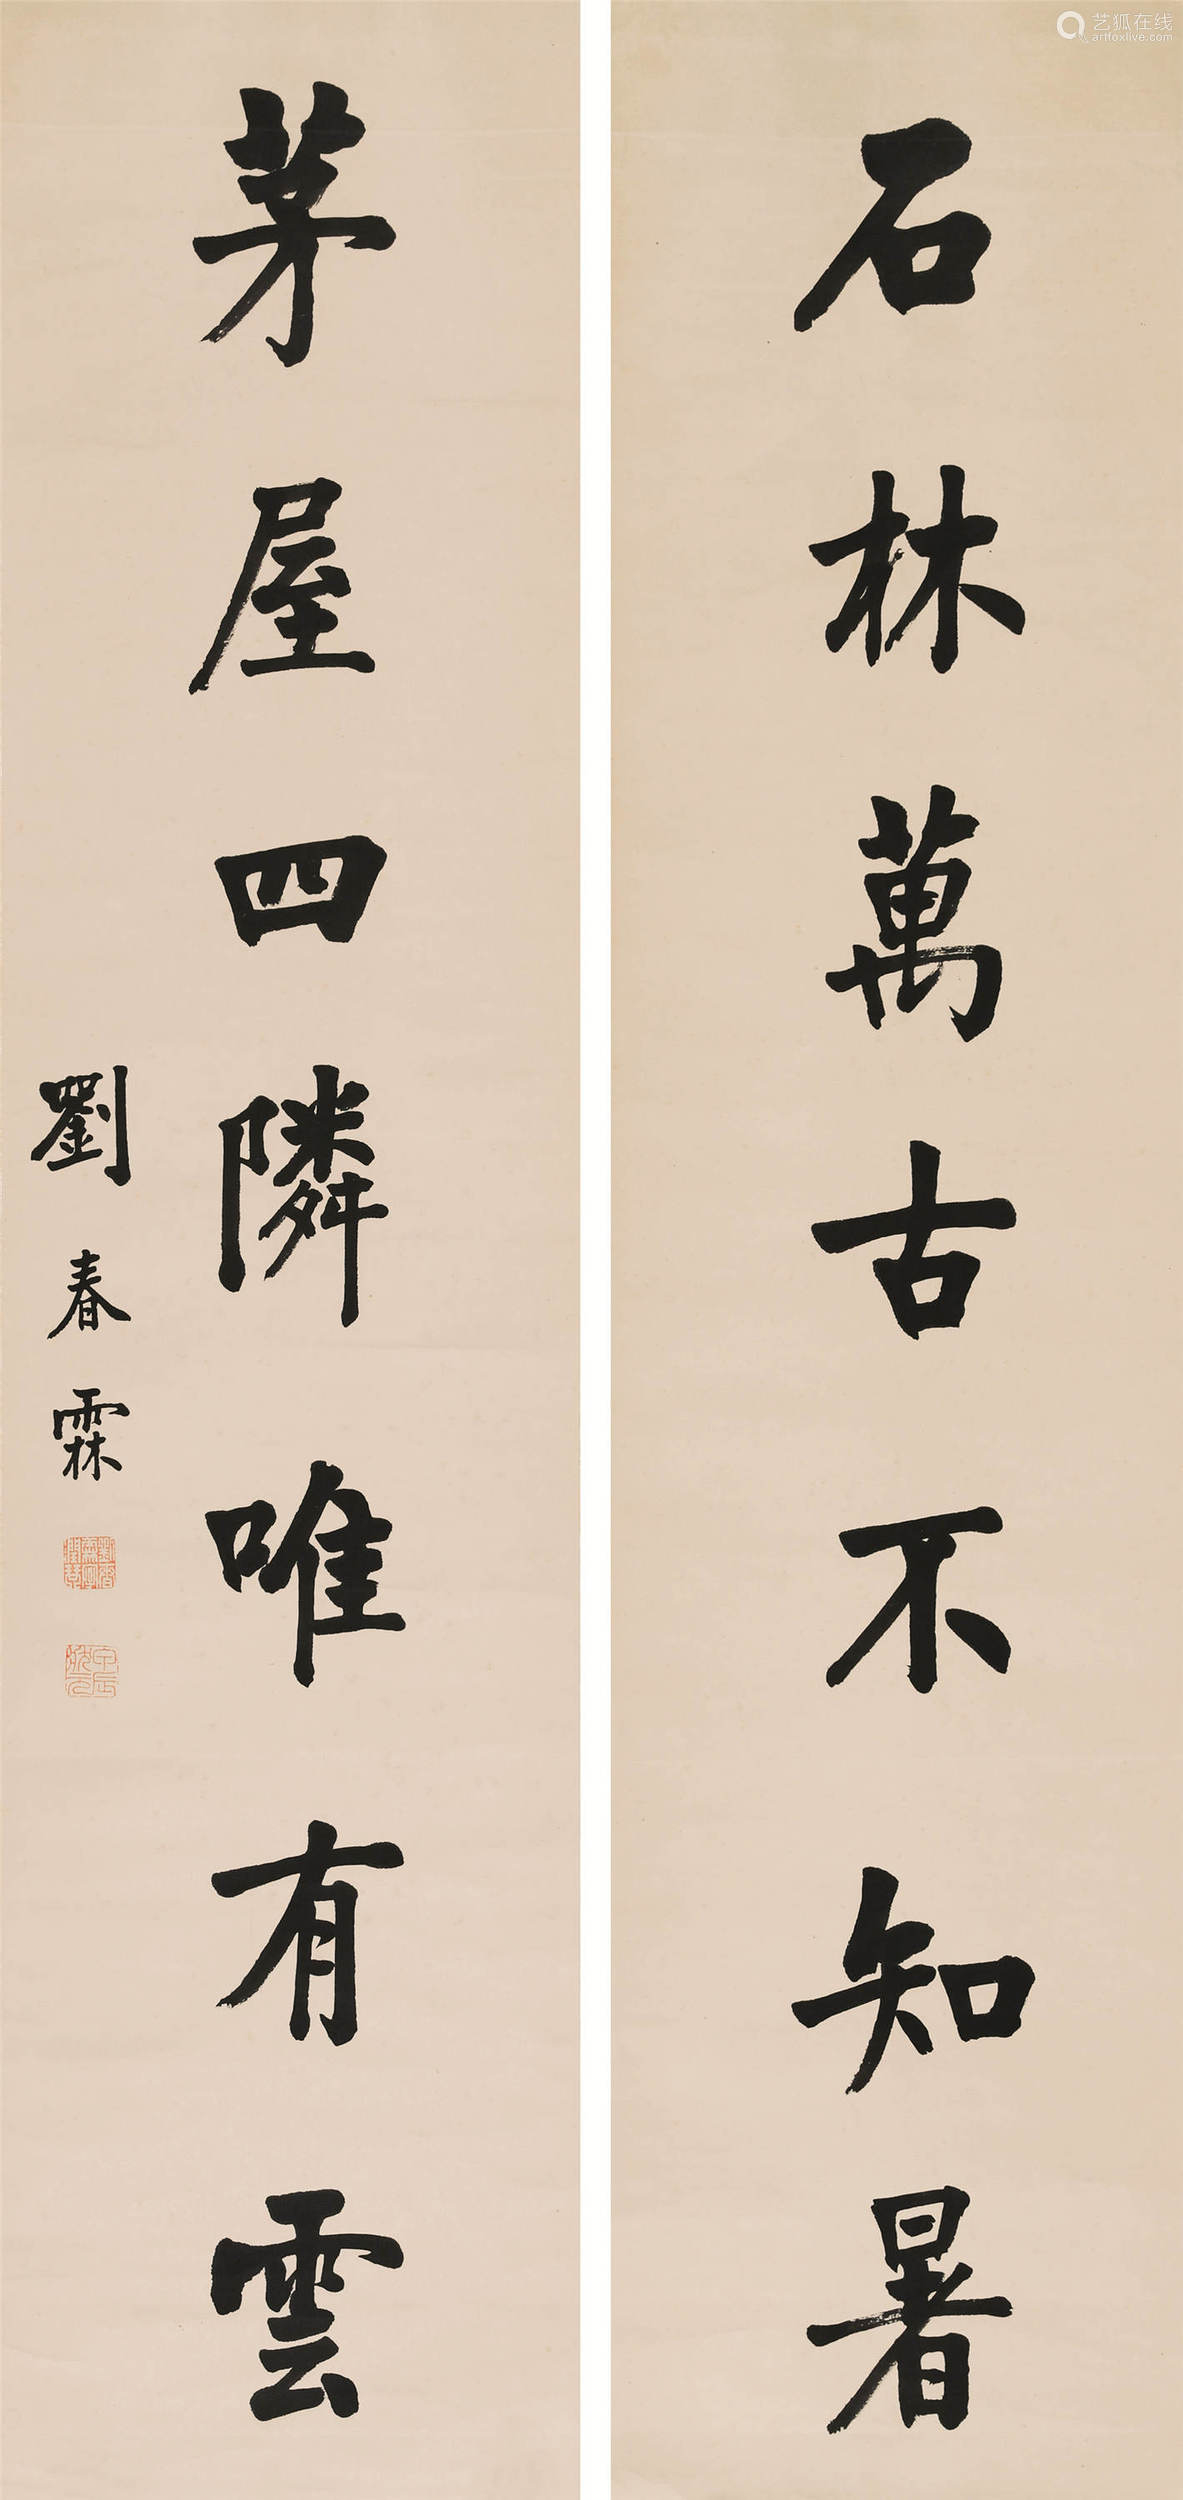 石林萬古不知暑
茅屋四隣唯有雲
劉春霖
艺狐在线
artfoxlive.com